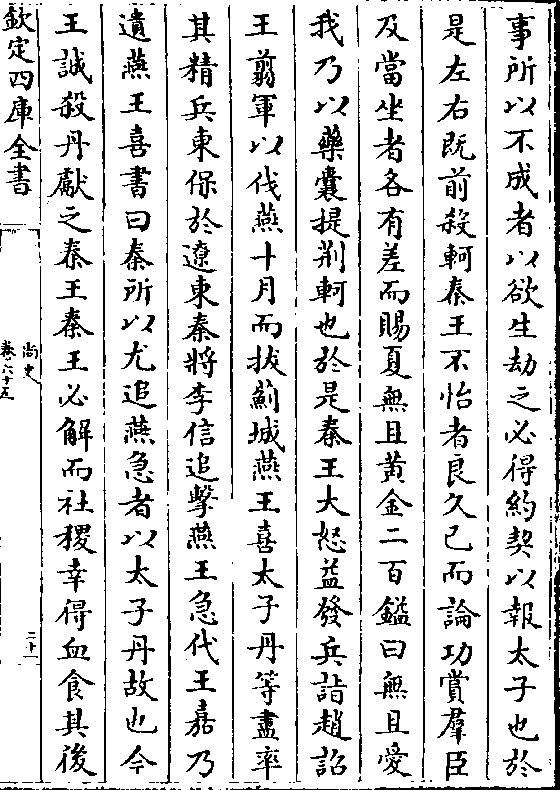 事所以不成者以欲生劫之必得約契以報太子也於
是左右既前殺軻秦王不怡者良久已而論功賞羣臣
及當坐者各有差而賜夏無且黃金二百鎰曰無且愛
我乃以藥囊提荆軻也於是秦王大怒益發兵詣趙詔
王翦軍以伐燕十月而拔薊城燕王喜太子丹等盡率
其精兵東保於遼東秦將李信追擊燕王急代王嘉乃
遺燕王喜書曰秦所以尤追燕急者以太子丹故也今
王誠殺丹獻之秦王秦王必解而社稷幸得血食其後
欽定四庫全書
尚史
卷六十五
二十一